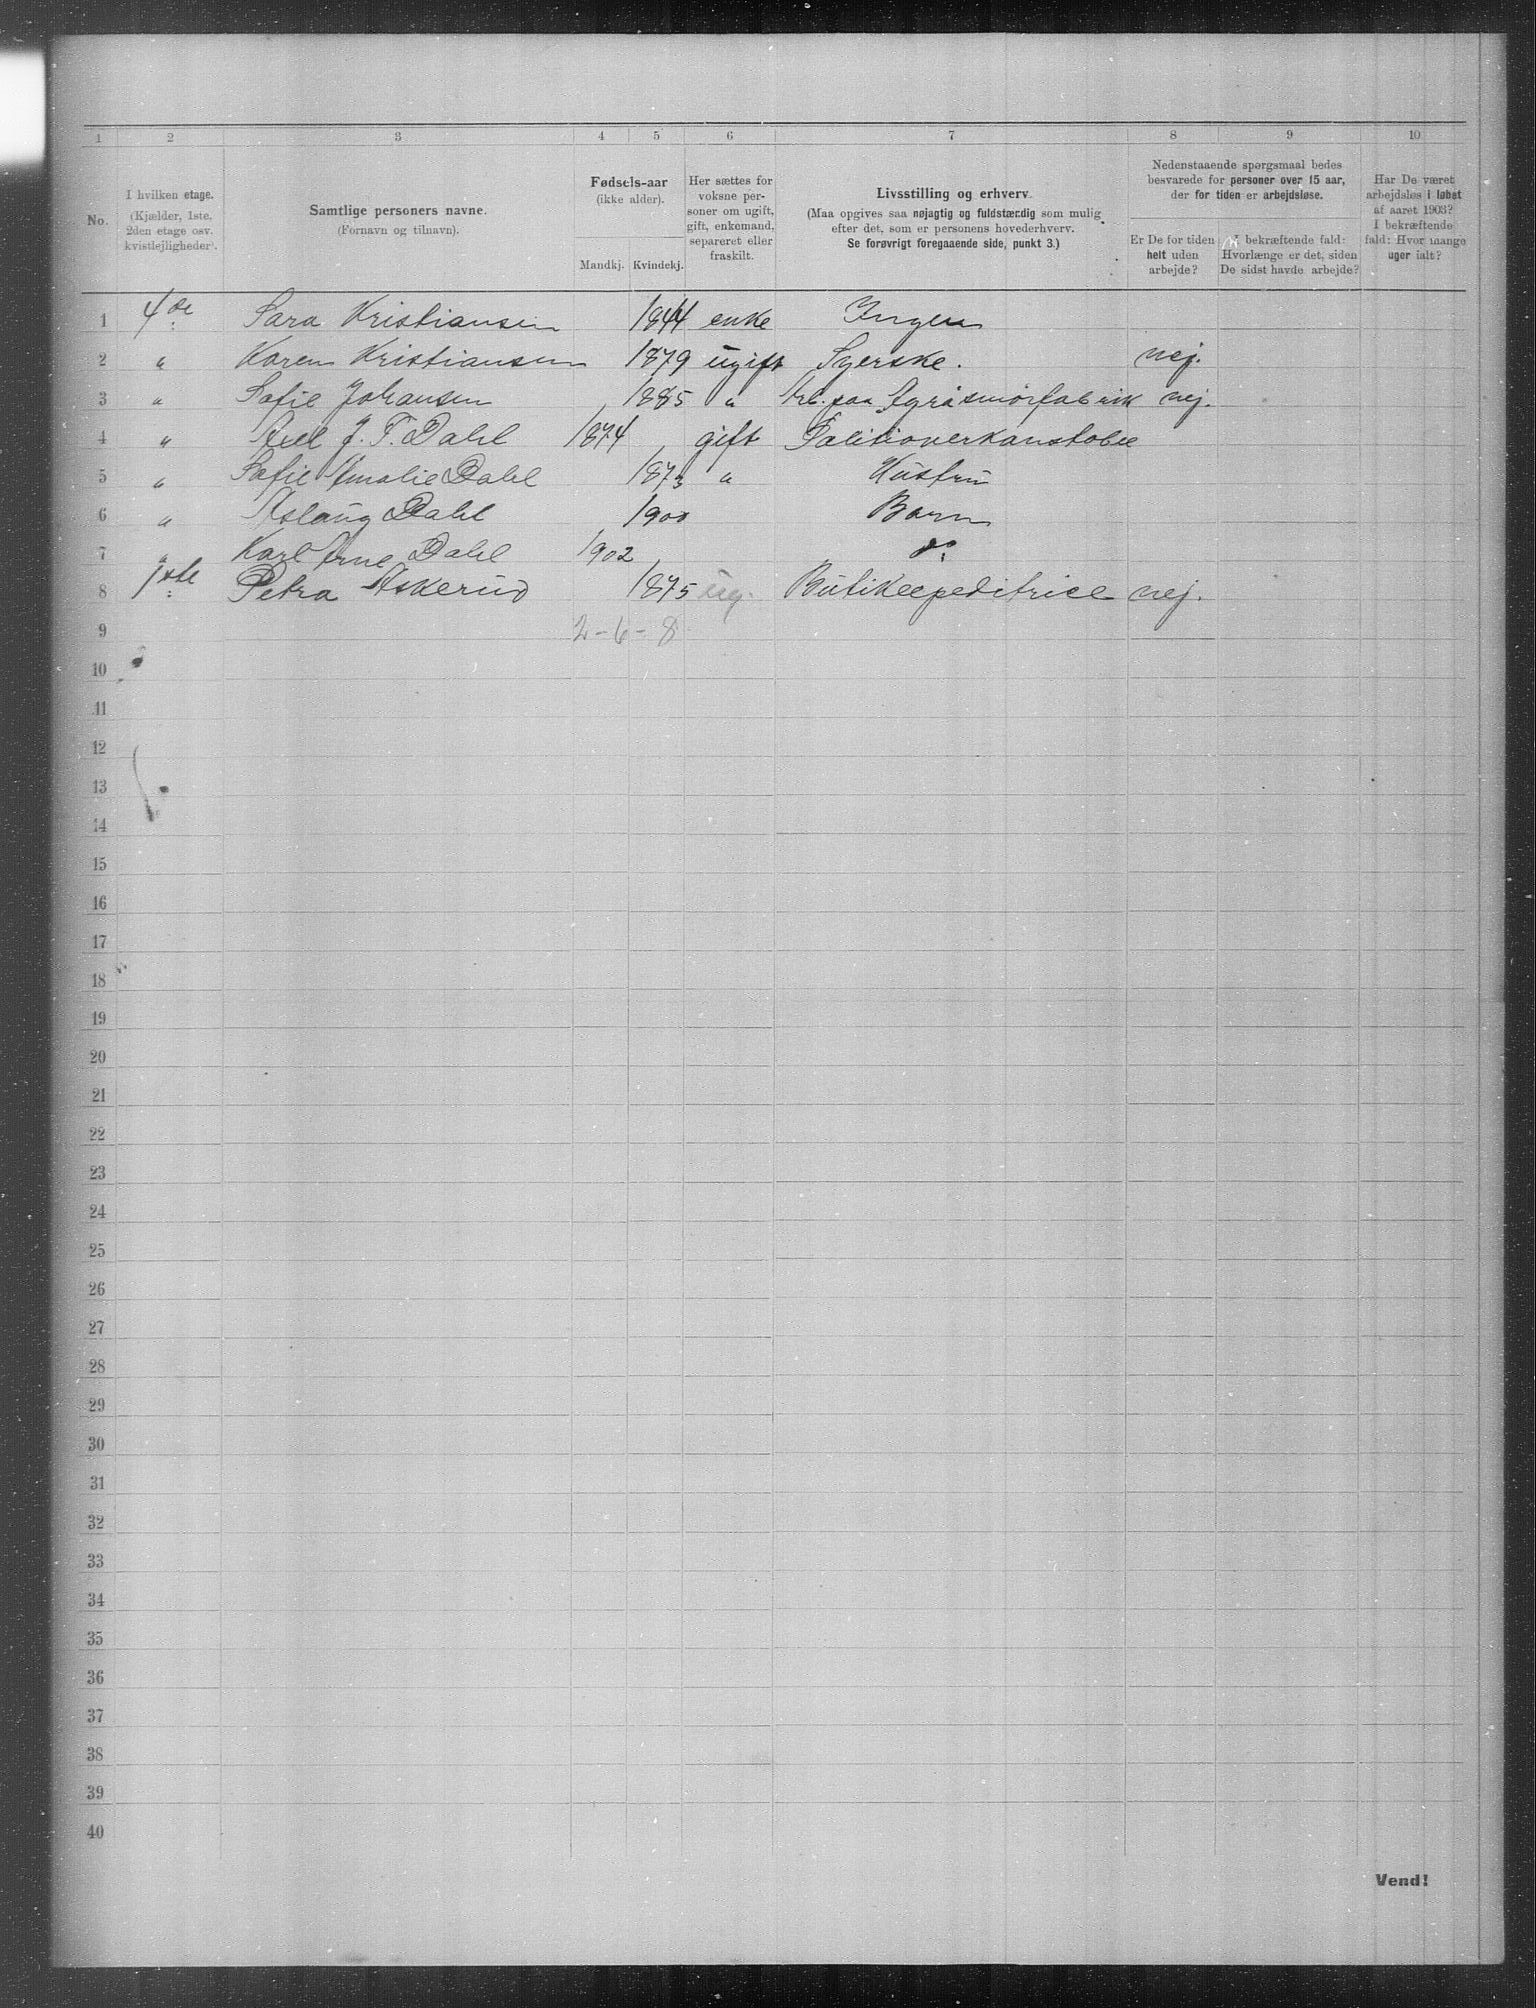 1 2 3 4 5 6 7 8 9 10
No.
I hvilken etage.
(Kjælder, 1ste,
2den etage osv.
kvistlejligheder).
Samtlige personers navne.
(Fornavn og tilnavn).
Fødsels-aar
(ikke alder).
Mandkj. Kvindekj.
Her sættes for
voksne per-
soner om ugift,
gift, enkemand,
separeret eller
fraskilt.
Livsstilling og erhverv.
(Maa opgives saa nøjagtig og fuldstændig som mulig
efter det, som er personens hovederhverv.
Se forøvrigt foregaaende side, punkt 3.)
Nedenstaaende spørgsmaal bedes
besvarede for personer over 15 aar,
der for tiden er arbejdsløse.
Er De for tiden
helt uden
arbejde?
I bekræftende fald:
Hvorlænge er det, siden
De sidst havde arbejde?
Har De været
arbejdsløs i løbet
af aaret 1903?
I bekræftende
fald: Hvor mange
uger ialt?
1 4de Sara Kristiansen 1844 enke Ingen
2 " Karen Kristiansen 1879 ugift Syerske. nej.
3 " Sofie Johansen 1885 " Arb. paa smørfabrik nej.
4 " Axel J. T. Dahl 1874 gift Politioverkonstabel
5 " Sofie Amalie Dahl 1873 " Hustru
6 " Aslaug Dahl 1900 Barn
7 " Karl Arne Dahl 1902 do
8 1ste Petra Askerud 1875 ug. Butikexpeditrice nej.
9 2-6-8
10
11
12
13
14
15
16
17
18
19
20
21
22
23
24
25
26
27
28
29
30
31
32
33
34
35
36
37
38
39
40
Vend!